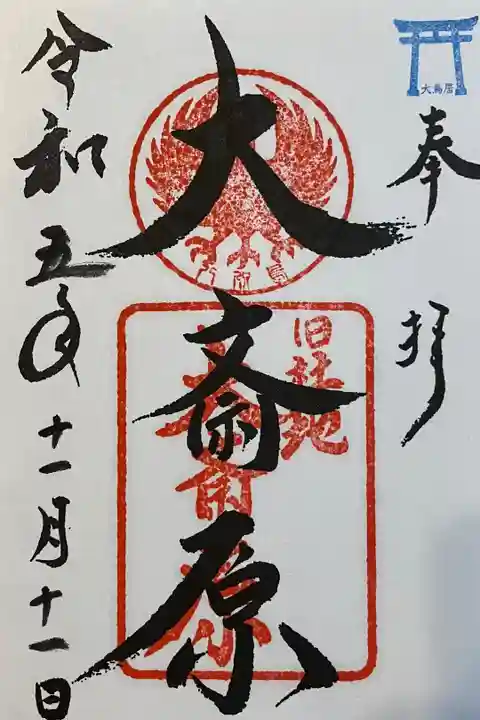 大鳥居
奉拝
旧社地
大斎原
令和五年十一月十一日